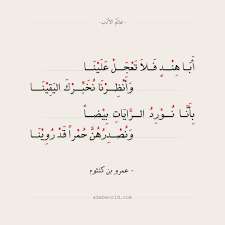 - عالم الأدب -
أَبَا هِنْـدٍ فَـلاَ تَعْجَـلْ عَلَيْنَـا
وَأَنْظِـرْنَا نُخَبِّـرْكَ اليَقِيْنَـا
بِأَنَّـا نُـوْرِدُ الـرَّايَاتِ بِيْضـاً
وَنُصْـدِرُهُنَّ حُمْراً قَدْ رُوِيْنَـا
- عمرو بن كلثوم -
adabworld.com